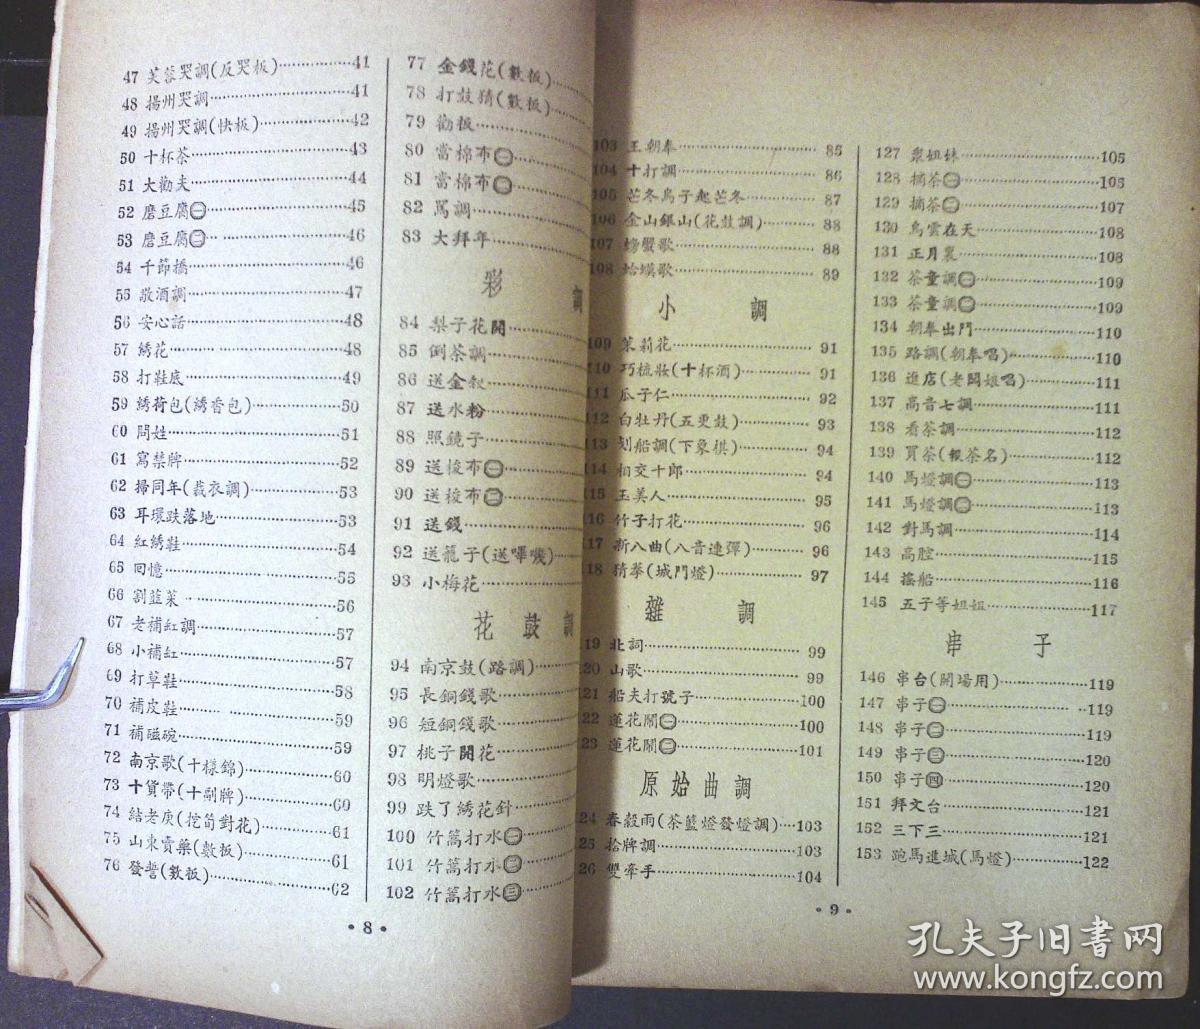 47 芙蓉哭調(反哭板)⋯⋯41
48 揚州哭調⋯⋯41
49 揚州哭調(快板)⋯⋯42
50 十杯茶⋯⋯43
51 大勸夫⋯⋯44
52 磨豆腐㊀⋯⋯45
53 磨豆腐㊁⋯⋯46
54 千節橋⋯⋯46
55 敬酒調⋯⋯47
56 安心話⋯⋯48
57 綉花⋯⋯48
58 打鞋底⋯⋯49
59 綉荷包(綉香包)⋯⋯50
60 問姓⋯⋯51
61 寫禁牌⋯⋯52
62 掃同年(裁衣調)⋯⋯53
63 耳環跌落地⋯⋯53
64 紅綉鞋⋯⋯54
65 回憶⋯⋯55
66 割韮菜⋯⋯56
67 老補缸調⋯⋯57
68 小補缸⋯⋯57
69 打草鞋⋯⋯58
70 補皮鞋⋯⋯59
71 補磁碗⋯⋯59
72 南京歌(十樣錦)⋯⋯60
73 十貨帶(十劃牌)⋯⋯60
74 結老庚(挖筍對花)⋯⋯61
75 山東賣藥(數板)⋯⋯61
76 發誓(數板)⋯⋯62
77 金錢花(數板)
78 打鼓猜(數板)
79 勸板
80 當棉布㊀
81 當棉布㊁
82 罵調
83 大拜年
彩 調
84 梨子花開
85 倒茶調
86 送金釵
87 送水粉
88 照鏡子
89 送梭布㊀
90 送梭布㊁
91 送錢
92 送籠子(送嗶嘰)
93 小梅花
花 鼓 調
94 南京鼓(路調)
95 長銅錢歌
96 短銅錢歌
97 桃子開花
98 明燈歌
99 跌了綉花針
100 竹篙打水㊀
101 竹篙打水㊁
102 竹篙打水㊂
• 8 •
103 王朝奉⋯⋯85
104 十打調⋯⋯86
105 芒冬鳥子起芒冬⋯⋯87
106 金山銀山(花鼓調)⋯⋯88
107 螃蟹歌⋯⋯88
108 蛤蟆歌⋯⋯89
小 調
109 茉莉花⋯⋯91
110 巧梳妝(十杯酒)⋯⋯91
111 瓜子仁⋯⋯92
112 白牡丹(五更鼓)⋯⋯93
113 划船調(下象棋)⋯⋯94
114 相交十郎⋯⋯94
115 玉美人⋯⋯95
116 竹子打花⋯⋯96
117 新八曲(八音連彈)⋯⋯96
118 猜拳(城門燈)⋯⋯97
雜 調
119 北詞⋯⋯99
120 山歌⋯⋯99
121 船夫打號子⋯⋯100
122 蓮花鬧㊀⋯⋯100
123 蓮花鬧㊁⋯⋯101
原始曲調
124 春穀雨(茶籃燈發燈調)⋯⋯103
125 拾牌調⋯⋯103
126 雙牽手⋯⋯104
127 眾姐妹⋯⋯105
128 摘茶㊀⋯⋯105
129 摘茶㊁⋯⋯107
130 烏雲在天⋯⋯108
131 正月裏⋯⋯108
132 茶童調㊀⋯⋯109
133 茶童調㊁⋯⋯109
134 朝奉出門⋯⋯110
135 路調(朝奉唱)⋯⋯110
136 進店(老闆娘唱)⋯⋯111
137 高音七調⋯⋯111
138 看茶調⋯⋯112
139 買茶(報茶名)⋯⋯112
140 馬燈調㊀⋯⋯113
141 馬燈調㊁⋯⋯113
142 對馬調⋯⋯114
143 高腔⋯⋯115
144 搖船⋯⋯116
145 五子等姐姐⋯⋯117
串 子
146 串台(開場用)⋯⋯119
147 串子㊀⋯⋯119
148 串子㊁⋯⋯119
149 串子㊂⋯⋯120
150 串子㊃⋯⋯120
151 拜文台⋯⋯121
152 三下三⋯⋯121
153 跑馬進城(馬燈)⋯⋯122
• 9 •
孔夫子旧书网
www.kongfz.com